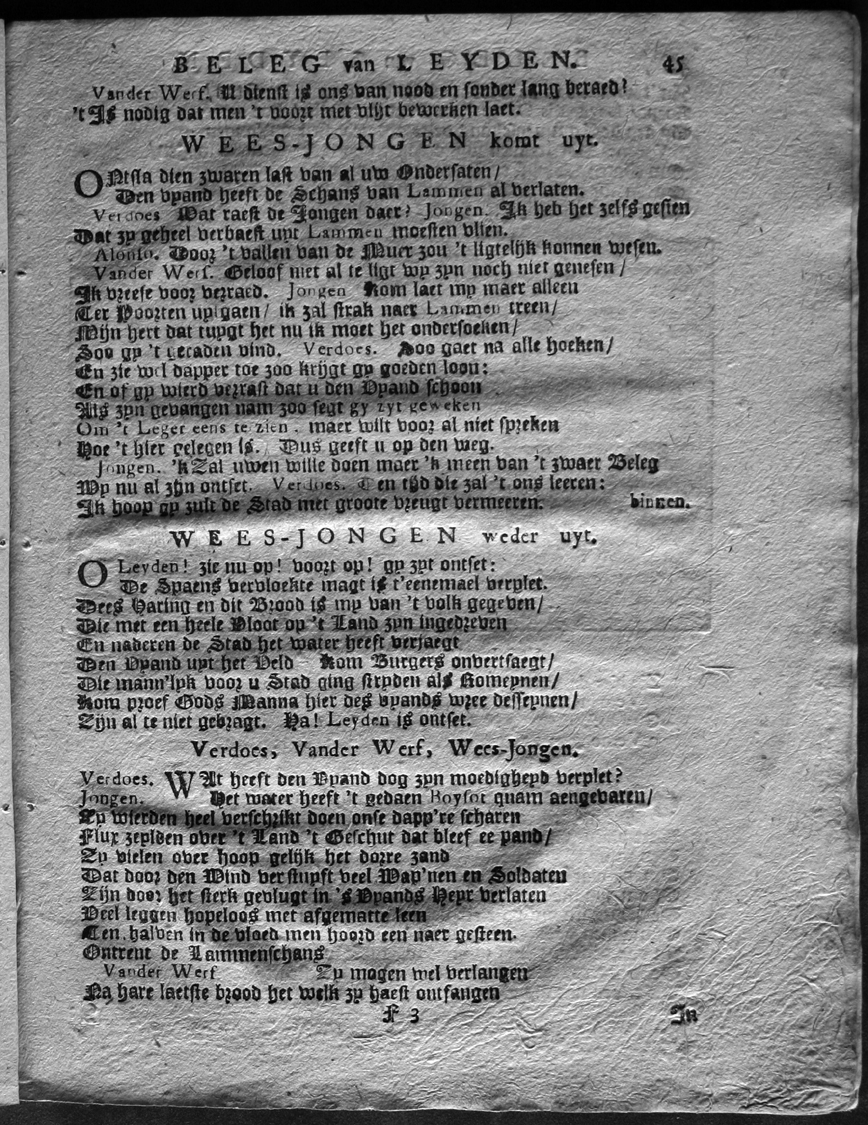 BELEG van LEYDEN. 45
Vander Werf. U dienst is ons van nood en sonder lang beraed?
't Is nodig dat men 't voort met vlijt bewerken laet.
WEES-JONGEN komt uyt.
ONtsla dien zwaren last van al uw Ondersaten/
Den vyand heeft de Schans van Lammen al verlaten.
Verdoes Wat raest de Jongen daer? Jongen. Ik heb het zelfs gesien
Dat zy geheel verbaest uyt Lammen moesten vlien.
Alonso. Door 't vallen van de Muer zou 't ligtelijk konnen wesen.
Vander Werf. Geloof niet al te ligt wy zyn noch niet genesen/
Ik vreese voor verraed. Jongen Kom laet my maer alleen
Ter Poorten uytgaen/ ik zal strak naer Lammen treen/
Mijn hert dat tuygt het nu ik moet het ondersoeken/
Soo gy 't geraden vind. Verdoes. Soo gaet na alle hoeken/
En zie wel dapper toe zoo krijgt gy goeden loon:
En of gy wierd verrast dat u den Vyand schoon
Als zyn gevangen nam zoo segt gy zyt geweken
Om 't Leger eens te zien, maer wilt voor al niet spreken
Hoe 't hier gelegen is. Dus geeft u op den weg.
Jongen. 'k Zal uwen wille doen maer 'k meen van 't zwaer Beleg
Wy nu al zijn ontset. Verdoes. Den tijd die zal 't ons leeren:
Ik hoop gy zult de Stad met groote vreugt vermeeren. binnen.
WEES-JONGEN weder uyt.
O Leyden! zie nu op! voort op! gy zyt ontset:
De Spaens vervloekte magt is t'eenemael verplet.
Dees Haring en dit Brood is my van 't volk gegeven/
Die met een heele Vloot op 't Land zyn ingedreven
En naderen de Stad het water heeft verjaegt
Den Vyand uyt het Veld Kom Burgers onvertsaegt/
Die mann'lyk voor u Stad ging stryden als Romeynen/
Kom proef Gods Manna hier des vyands wree desseynen/
Zijn al te niet gebragt. Ha! Leyden is ontset.
Verdoes, Vander Werf, Wees-Jongen.
Verdoes. WAt heeft den Vyand dog zyn moedigheyd verplet?
Jongen. Het water heeft 't gedaen Boysot quam aengevaren/
Zy wierden heel verschrikt doen onse dapp're scharen
Flux zeylden over 't Land 't Geschut dat bleef ee pand/
Zy vielen over hoop gelijk het dorre zand
Dat door den Wind verstuyft veel Wap'nen en Soldaten
Zijn door het sterk gevlugt in 's Vyands Heyr verlaten
Veel leggen hopeloos met afgematte leen
Ten halven in de vloed men hoord een naer gesteen.
Ontrent de Lammenschans
Vander Werf Zy mogen wel verlangen
Na hare laetste brood het welk zy haest ontfangen
F 3 In